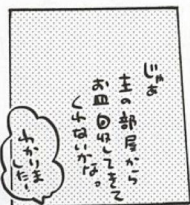 じゃあ
主の部屋から
お皿回収してきて
くれないかな。
わかりま
した!